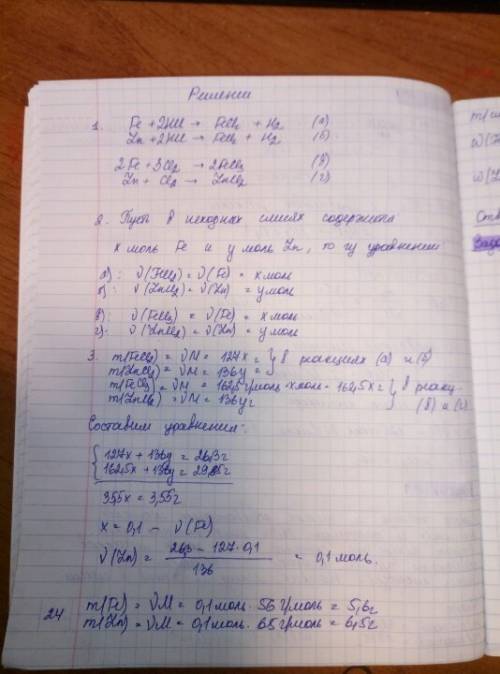 Решение
1. Fe + 2HCl → FeCl2 + H2 (а)
Zn + 2HCl → FeCl2 + H2 (б)
2Fe + 3Cl2 → 2FeCl3 (в)
Zn + Cl2 → ZnCl2 (г)
2. Пусть в исходных смесях содержится
x моль Fe и y моль Zn, то из уравнений:
а): ν(FeCl2) = ν(Fe) = x моль
б): ν(ZnCl2) = ν(Zn) = y моль
в): ν(FeCl3) = ν(Fe) = x моль
г): ν(ZnCl2) = ν(Zn) = y моль
3. m(FeCl2) = νM = 127x г } в реакциях (а) и (б)
m(ZnCl2) = νM = 136y г
m(FeCl3) = νM = 162,5 г/моль · x моль = 162,5x г } в реак-
m(ZnCl2) = νM = 136y г (в) и (г)
Составим уравнения:
{ 127x + 136y = 26,3 г
162,5x + 136y = 29,85 г
35,5x = 3,55 г
x = 0,1 – ν(Fe)
ν(Zn) = 26,3 – 127 · 0,1 / 136 = 0,1 моль.
m(Fe) = νM = 0,1 моль · 56 г/моль = 5,6 г
24
m(Zn) = νM = 0,1 моль · 65 г/моль = 6,5 г